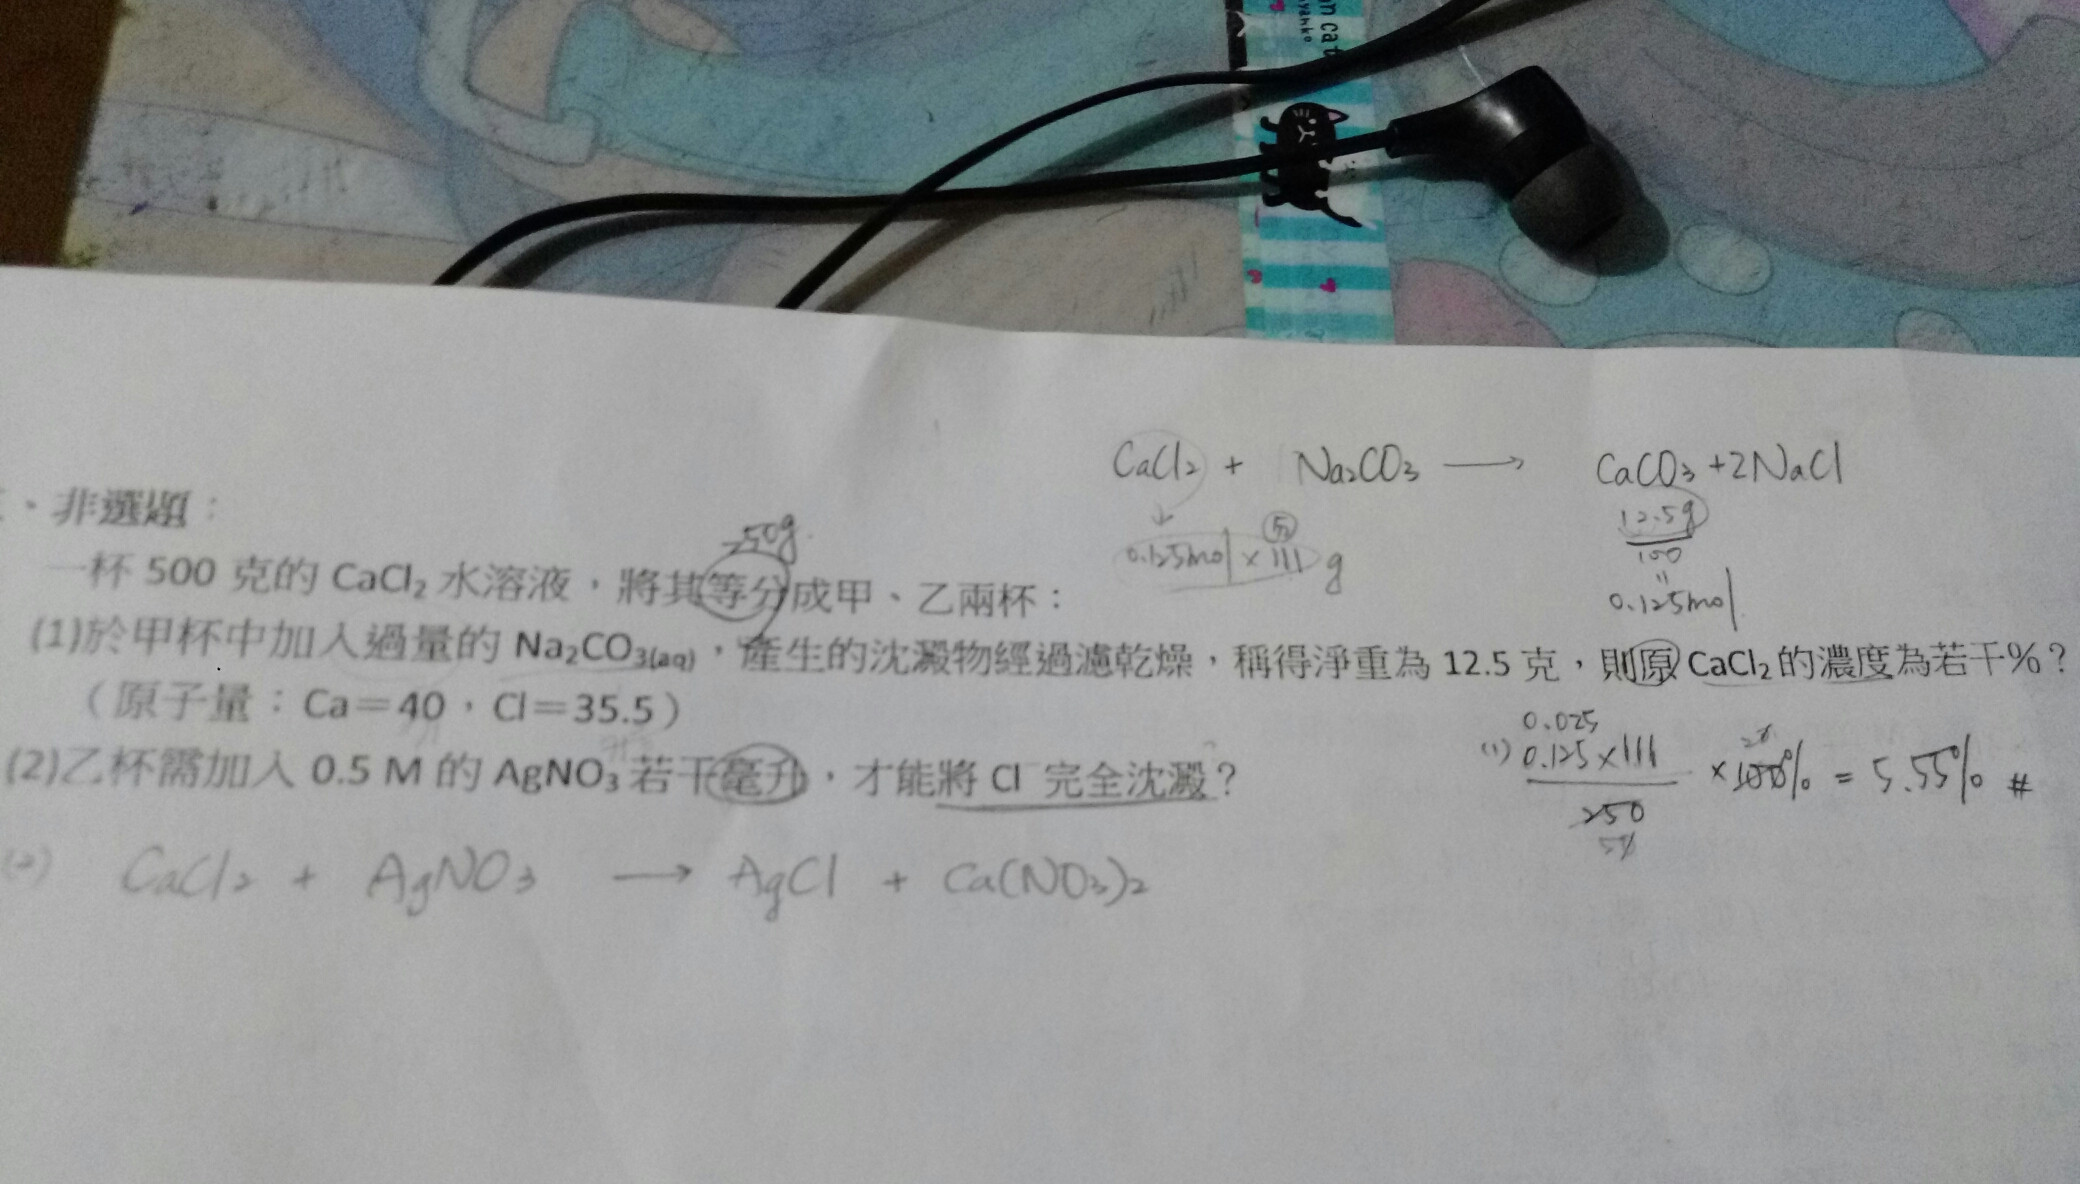 n cat
yanko
CaCl₂ + Na₂CO₃ ⟶ CaCO₃ + 2NaCl
12.5g
100
"
0.125mol
↓
0.125mol × 111 g
、非選題：
250g
一杯 500 克的 CaCl₂ 水溶液，將其等分成甲、乙兩杯：
(1)於甲杯中加入過量的 Na₂CO₃₍ₐq₎，產生的沈澱物經過濾乾燥，稱得淨重為 12.5 克，則原 CaCl₂ 的濃度為若干%？
（原子量：Ca＝40，Cl＝35.5）
(2)乙杯需加入 0.5 M 的 AgNO₃ 若干毫升，才能將 Cl⁻ 完全沈澱？
0.025
(1) 0.125×111
250
× 100% = 5.55% #
(2) CaCl₂ + AgNO₃ ⟶ AgCl + Ca(NO₃)₂